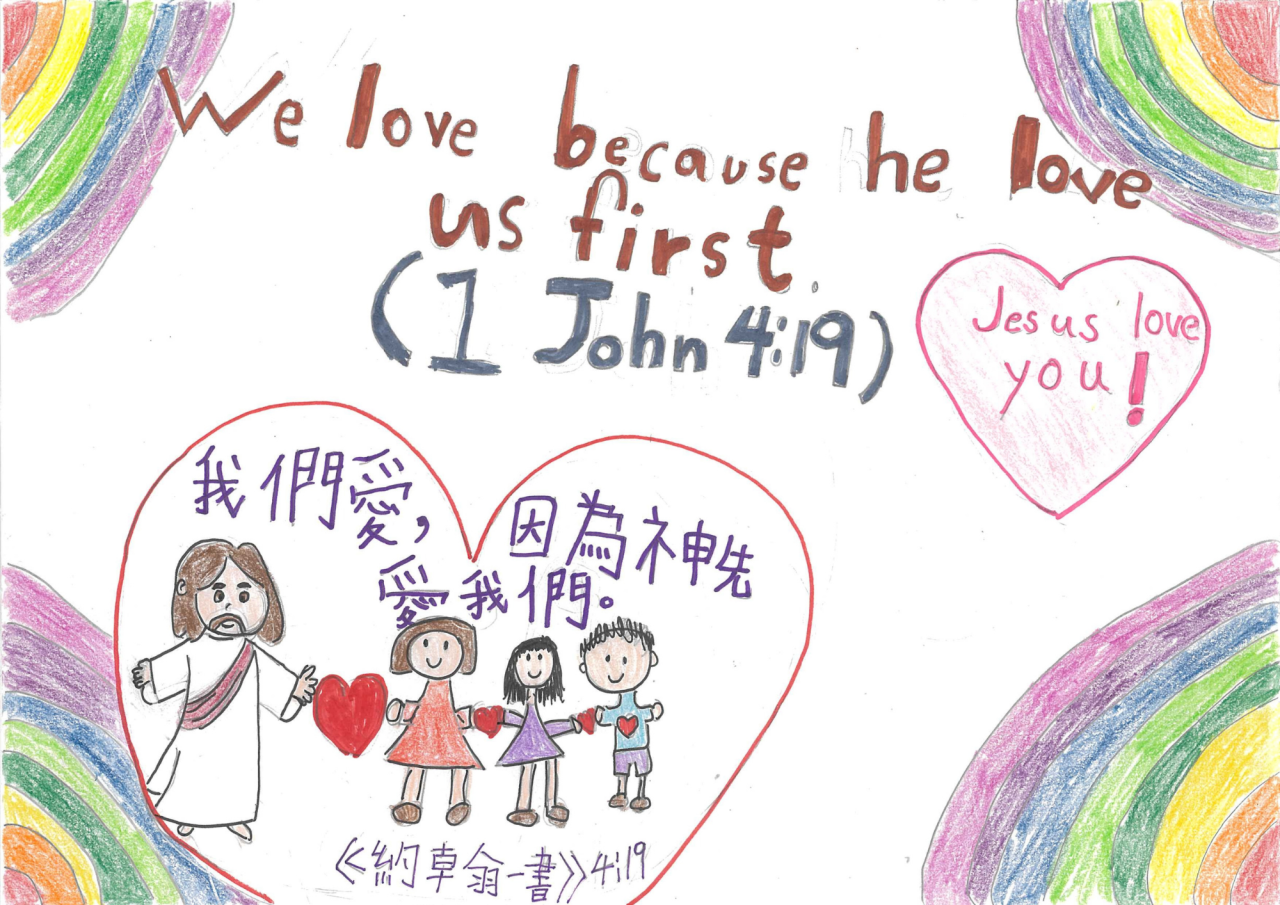 We love because he love
us first.
(1 John 4:19)
Jesus love
you!
我們愛,因為神先
愛我們。
《約翰一書》4:19